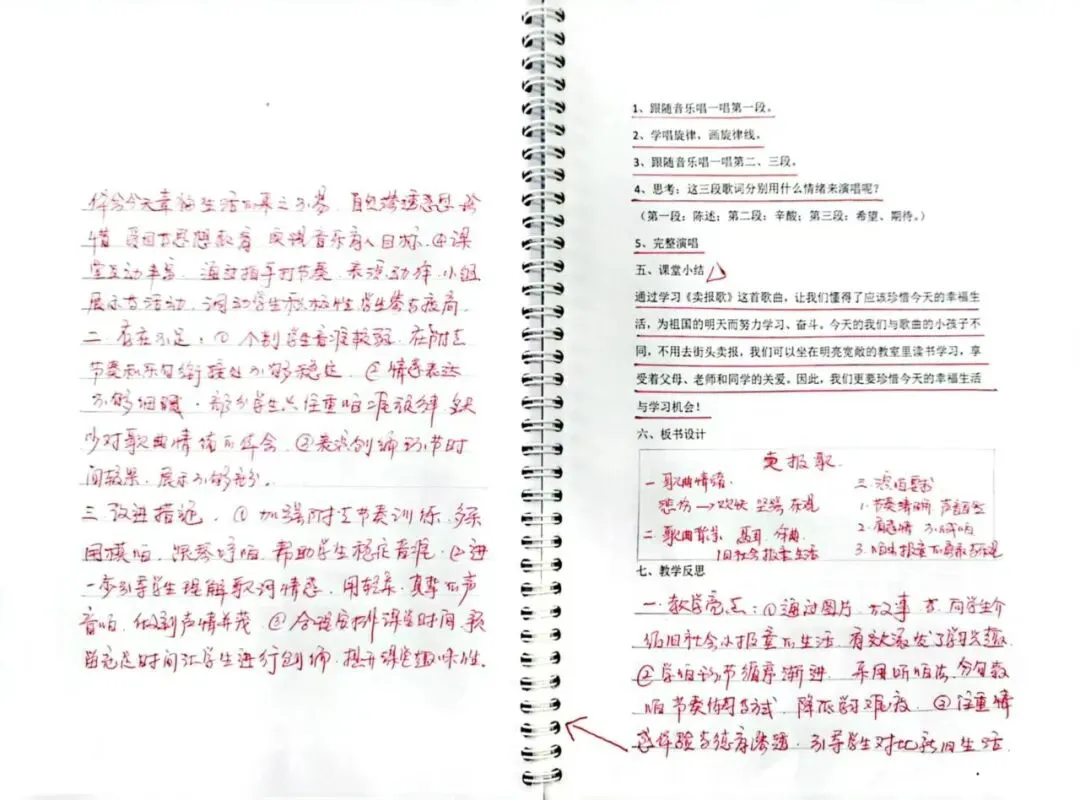 体会今天幸福生活来之不易，自然渗透感恩珍
惜 爱国方思想教育 实现音乐育人目标。④课
堂互动丰富，通过拍手打节奏、表演动作、小组
展示等活动，调动学生积极性，学生参与度高。
二、存在不足：① 个别学生音准较弱，在附点
节奏和乐句衔接处不够稳定。② 情感表达
不够细腻，部分学生只注重唱准旋律，缺
少对歌曲情绪的体会。③表演创编环节时
间较紧，展示不够充分。
三、改进措施，① 加强附点节奏训练，多采
用模唱、跟琴哼唱，帮助学生稳定音准。②进
一步引导学生理解歌词情感，用轻柔、真挚的声
音唱，做到声情并茂。③ 合理安排课堂时间，预
留充足时间让学生进行创编，提升课堂趣味性。
1、跟随音乐唱一唱第一段。
2、学唱旋律、画旋律线。
3、跟随音乐唱一唱第二、三段。
4、思考：这三段歌词分别用什么情绪来演唱呢？
（第一段：陈述；第二段：辛酸；第三段：希望、期待。）
5、完整演唱
五、课堂小结
通过学习《卖报歌》这首歌曲，让我们懂得了应该珍惜今天的幸福生
活，为祖国的明天而努力学习、奋斗。今天的我们与歌曲的小孩子不
同，不用去街头卖报，我们可以坐在明亮宽敞的教室里读书学习，享
受着父母、老师和同学的关爱。因此，我们更要珍惜今天的幸福生活
与学习机会！
六、板书设计
卖报歌
一 歌曲情绪：
悲伤→欢快 坚强 乐观
二、歌曲背景 聂耳 作曲
旧社会报童生活
三、演唱要求
1. 节奏清晰
2. 有感情
3. 唱出报童的
七、教学反思
一、教学亮点：①通过图片、故事 向学生介
绍旧社会小报童的生活，有效激发了学习兴趣。
②学唱环节循序渐进，采用听唱法、分句教
唱 节奏练习方式，降低学习难度。③注重情
感体验与德育渗透，引导学生对比新旧生活，